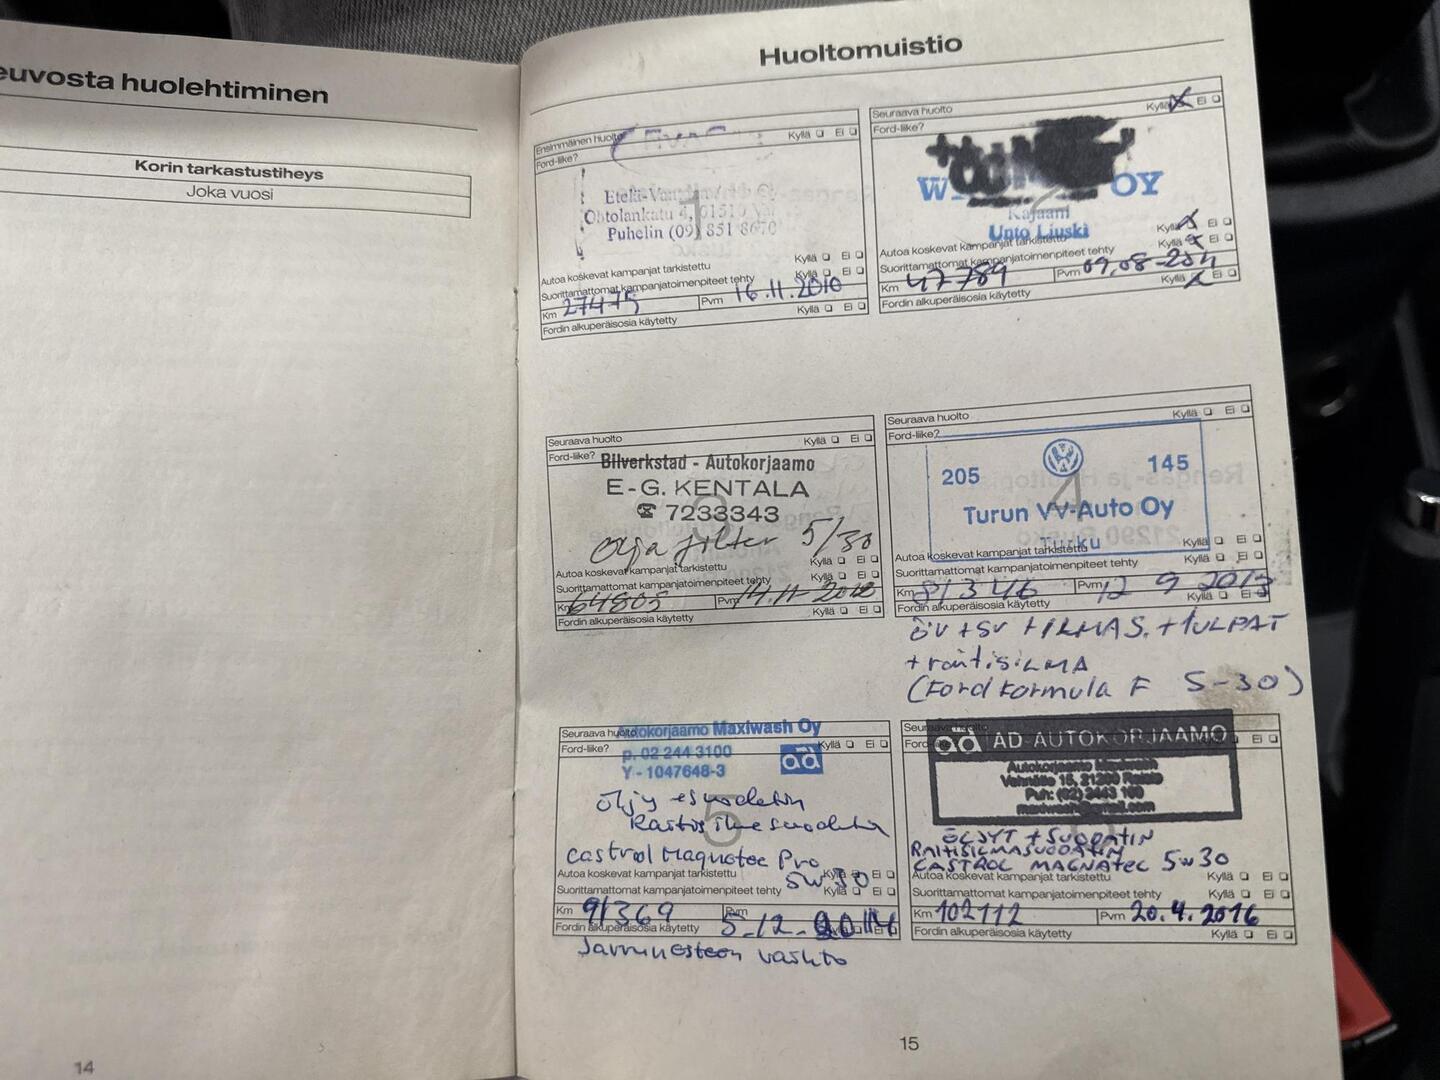 euvosta huolehtiminen
Korin tarkastustiheys
Joka vuosi
14
Huoltomuistio
Ensimmäinen huolto Kyllä Ei
Ford-liike?
1
Ohtolankatu 4, 01510
Puhelin (09) 851 8670
Autoa koskevat kampanjat tarkistettu Kyllä Ei
Suorittamattomat kampanjatoimenpiteet tehty Kyllä Ei
Km 27475 Pvm 16.11.2010
Fordin alkuperäisosia käytetty Kyllä Ei
Seuraava huolto Kyllä Ei
Ford-liike?
2
W OY
Kajaani
Unto Liuski
Autoa koskevat kampanjat tarkistettu Kyllä Ei
Suorittamattomat kampanjatoimenpiteet tehty Kyllä Ei
Km 47789 Pvm 09.08-2011
Fordin alkuperäisosia käytetty Kyllä Ei
Seuraava huolto Kyllä Ei
Ford-liike?
3
Bilverkstad - Autokorjaamo
E-G. KENTALA
☎ 7233343
filter 5/30
Autoa koskevat kampanjat tarkistettu Kyllä Ei
Suorittamattomat kampanjatoimenpiteet tehty Kyllä Ei
Km 64805 Pvm 14.11-2012
Fordin alkuperäisosia käytetty Kyllä Ei
Seuraava huolto Kyllä Ei
Ford-liike?
4
205 145
Turun VV-Auto Oy
Turku
Autoa koskevat kampanjat tarkistettu Kyllä Ei
Suorittamattomat kampanjatoimenpiteet tehty Kyllä Ei
Km 81346 Pvm 12 9 2013
Fordin alkuperäisosia käytetty Kyllä Ei
ÖV + SV + ILMAS. + TULPAT
+ raitisiLMA
(Ford Formula F 5-30)
Seuraava huolto Kyllä Ei
Ford-liike?
5
Autokorjaamo Maxiwash Oy
p. 02 244 3100
Y - 1047648-3
ad
Öljy + suodatin
Raitisilmasuodatin
Castrol Magnatec Pro
5W30
Autoa koskevat kampanjat tarkistettu Kyllä Ei
Suorittamattomat kampanjatoimenpiteet tehty Kyllä Ei
Km 91369 Pvm 5.12.2014
Fordin alkuperäisosia käytetty Kyllä Ei
Jarrunesteen vaihto
Seuraava huolto Kyllä Ei
Ford-liike?
6
ad AD-AUTOKORJAAMO
Autokorjaamo Maxiwash
Puh: (02) 2443 100
ÖLJYT + SUODATIN
RAITISILMASUODATIN
CASTROL MAGNATEC 5W30
Autoa koskevat kampanjat tarkistettu Kyllä Ei
Suorittamattomat kampanjatoimenpiteet tehty Kyllä Ei
Km 102112 Pvm 20.4.2016
Fordin alkuperäisosia käytetty Kyllä Ei
15